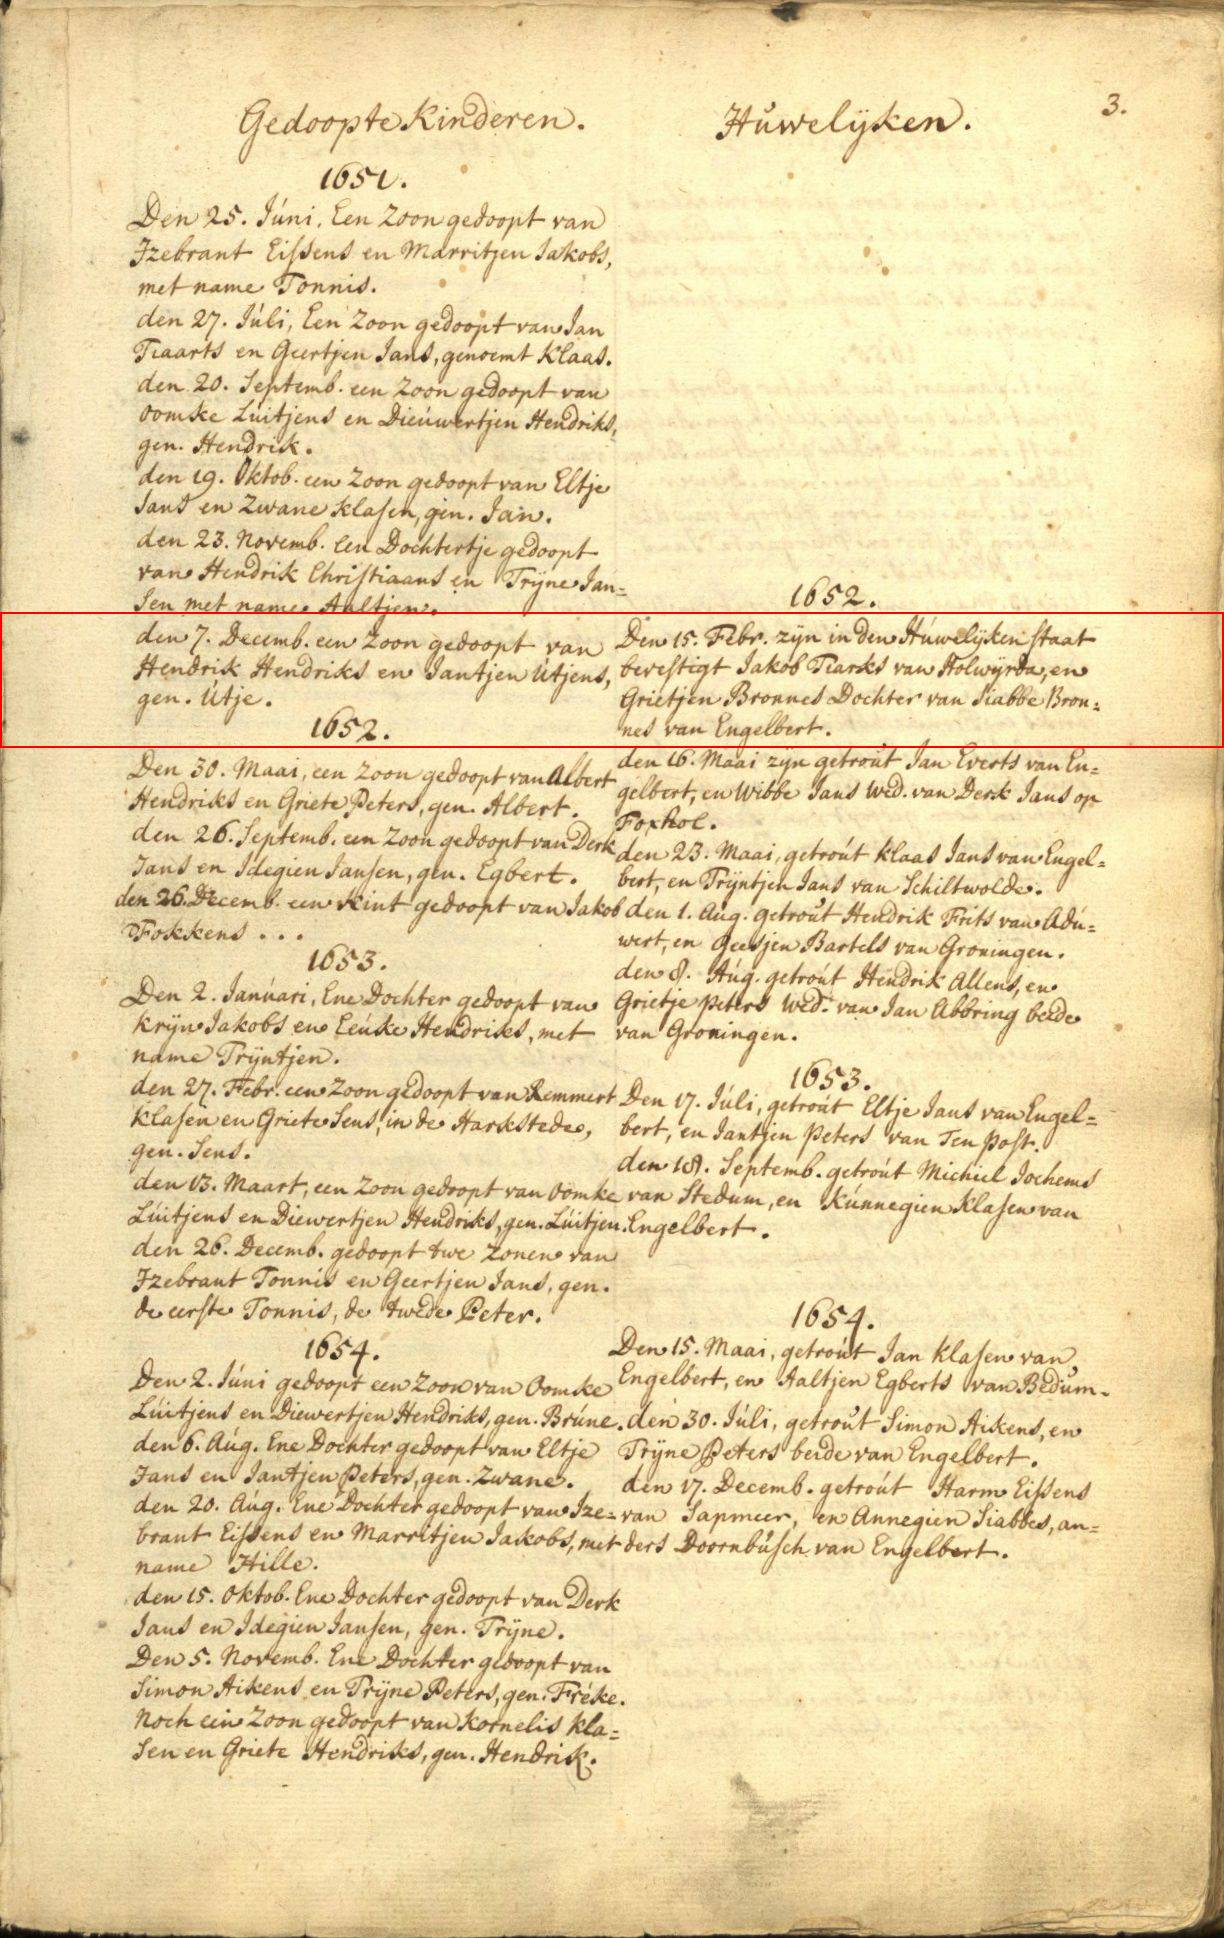 Gedoopte Kinderen.
1651.
Den 25. Júni, Een Zoon gedoopt van
Izebrant Eissens en Marritjen Jakobs,
met name Tonnis.
den 27. Júli, Een Zoon gedoopt van Jan
Tiaarts en Geertjen Jans, genoemt Klaas.
den 20. Septemb. een Zoon gedoopt van
Oomke Lúitjens en Dieúwertjen Hendriks,
gen. Hendrik.
den 19. Oktob. een Zoon gedoopt van Eltje
Jans en Zwane Klasen, gen. Jan.
den 23. Novemb. Een Dochtertje gedoopt
van Hendrik Christiaans en Trÿne Jan=
sen met name Aaltjen.
den 7. Decemb. een Zoon gedoopt van
Hendrik Hendriks en Jantjen Útjens,
gen. Útje.
1652.
Den 30. Maai, een Zoon gedoopt van Albert
Hendriks en Griete Peters, gen. Albert.
den 26. Septemb. een Zoon gedoopt van Derk
Jans en Idegien Jansen, gen. Egbert.
den 26. Decemb. een Kint gedoopt van Jakob
Fokkens . . .
1653.
Den 2. Janúari, Ene Dochter gedoopt van
Krÿn Jakobs en Eeúke Hendriks, met
name Trÿntjen.
den 27. Febr. een Zoon gedoopt van Remmert
Klasen en Griete Sens, in de Harkstede,
gen. Sens.
den 13. Maart, een Zoon gedoopt van Oomke
Lúitjens en Diewertjen Hendriks, gen. Lúitjen.
den 26. Decemb. gedoopt twe Zonen van
Izebrant Tonnis en Geertjen Jans, gen.
de eerste Tonnis, de twede Peter.
1654.
Den 2. Júni gedoopt een Zoon van Oomke
Lúitjens en Diewertjen Hendriks, gen. Brúne.
den 6. Aúg. Ene Dochter gedoopt van Eltje
Jans en Jantjen Peters, gen. Zwane.
den 20. Aúg. Ene Dochter gedoopt van Ize=
brant Eissens en Marritjen Jakobs, met
name Hille.
den 15. Oktob. Ene Dochter gedoopt van Derk
Jans en Idegien Jansen, gen. Trÿne.
Den 5. Novemb. Ene Dochter gedoopt van
Simon Aikens en Trÿne Peters, gen. Fréke.
Noch ein Zoon gedoopt van Kornelis Kla=
sen en Griete Hendriks, gen. Hendrik.
Húwelÿken.
3.
1652.
Den 15. Febr. zÿn in den Húwelÿken staat
bevestigt Jakob Tiarks van Holwÿrda, en
Grietjen Bronnes Dochter van Siabbe Bron=
nes van Engelbert.
den 16. Maai zÿn getroút Jan Everts van En=
gelbert, en Wibbe Jans Wed. van Derk Jans op
Foxhol.
den 23. Maai, getroút Klaas Jans van Engel=
bert, en Trÿntjen Jans van Schiltwolde.
den 1. Aúg. getroút Hendrik Frits van Adú=
wert, en Geesjen Bartels van Groningen.
den 8. Aúg. getroút Hendrik Allens, en
Grietje Peters Wed. van Jan Abbring beide
van Groningen.
1653.
Den 17. Júli, getroút Eltje Jans van Engel=
bert, en Jantjen Peters van Ten Post.
den 18. Septemb. getroút Michiel Jochems
van Stedum, en Kúnnegien Klasen van
Engelbert.
1654.
Den 15. Maai, getroút Jan Klasen van
Engelbert, en Aaltjen Egberts van Bedum.
den 30. Júli, getroút Simon Aikens, en
Trÿne Peters beide van Engelbert.
den 17. Decemb. getroút Harm Eissens
van Sapmeer, en Annegien Siabbes, an=
ders Doornbúsch van Engelbert.